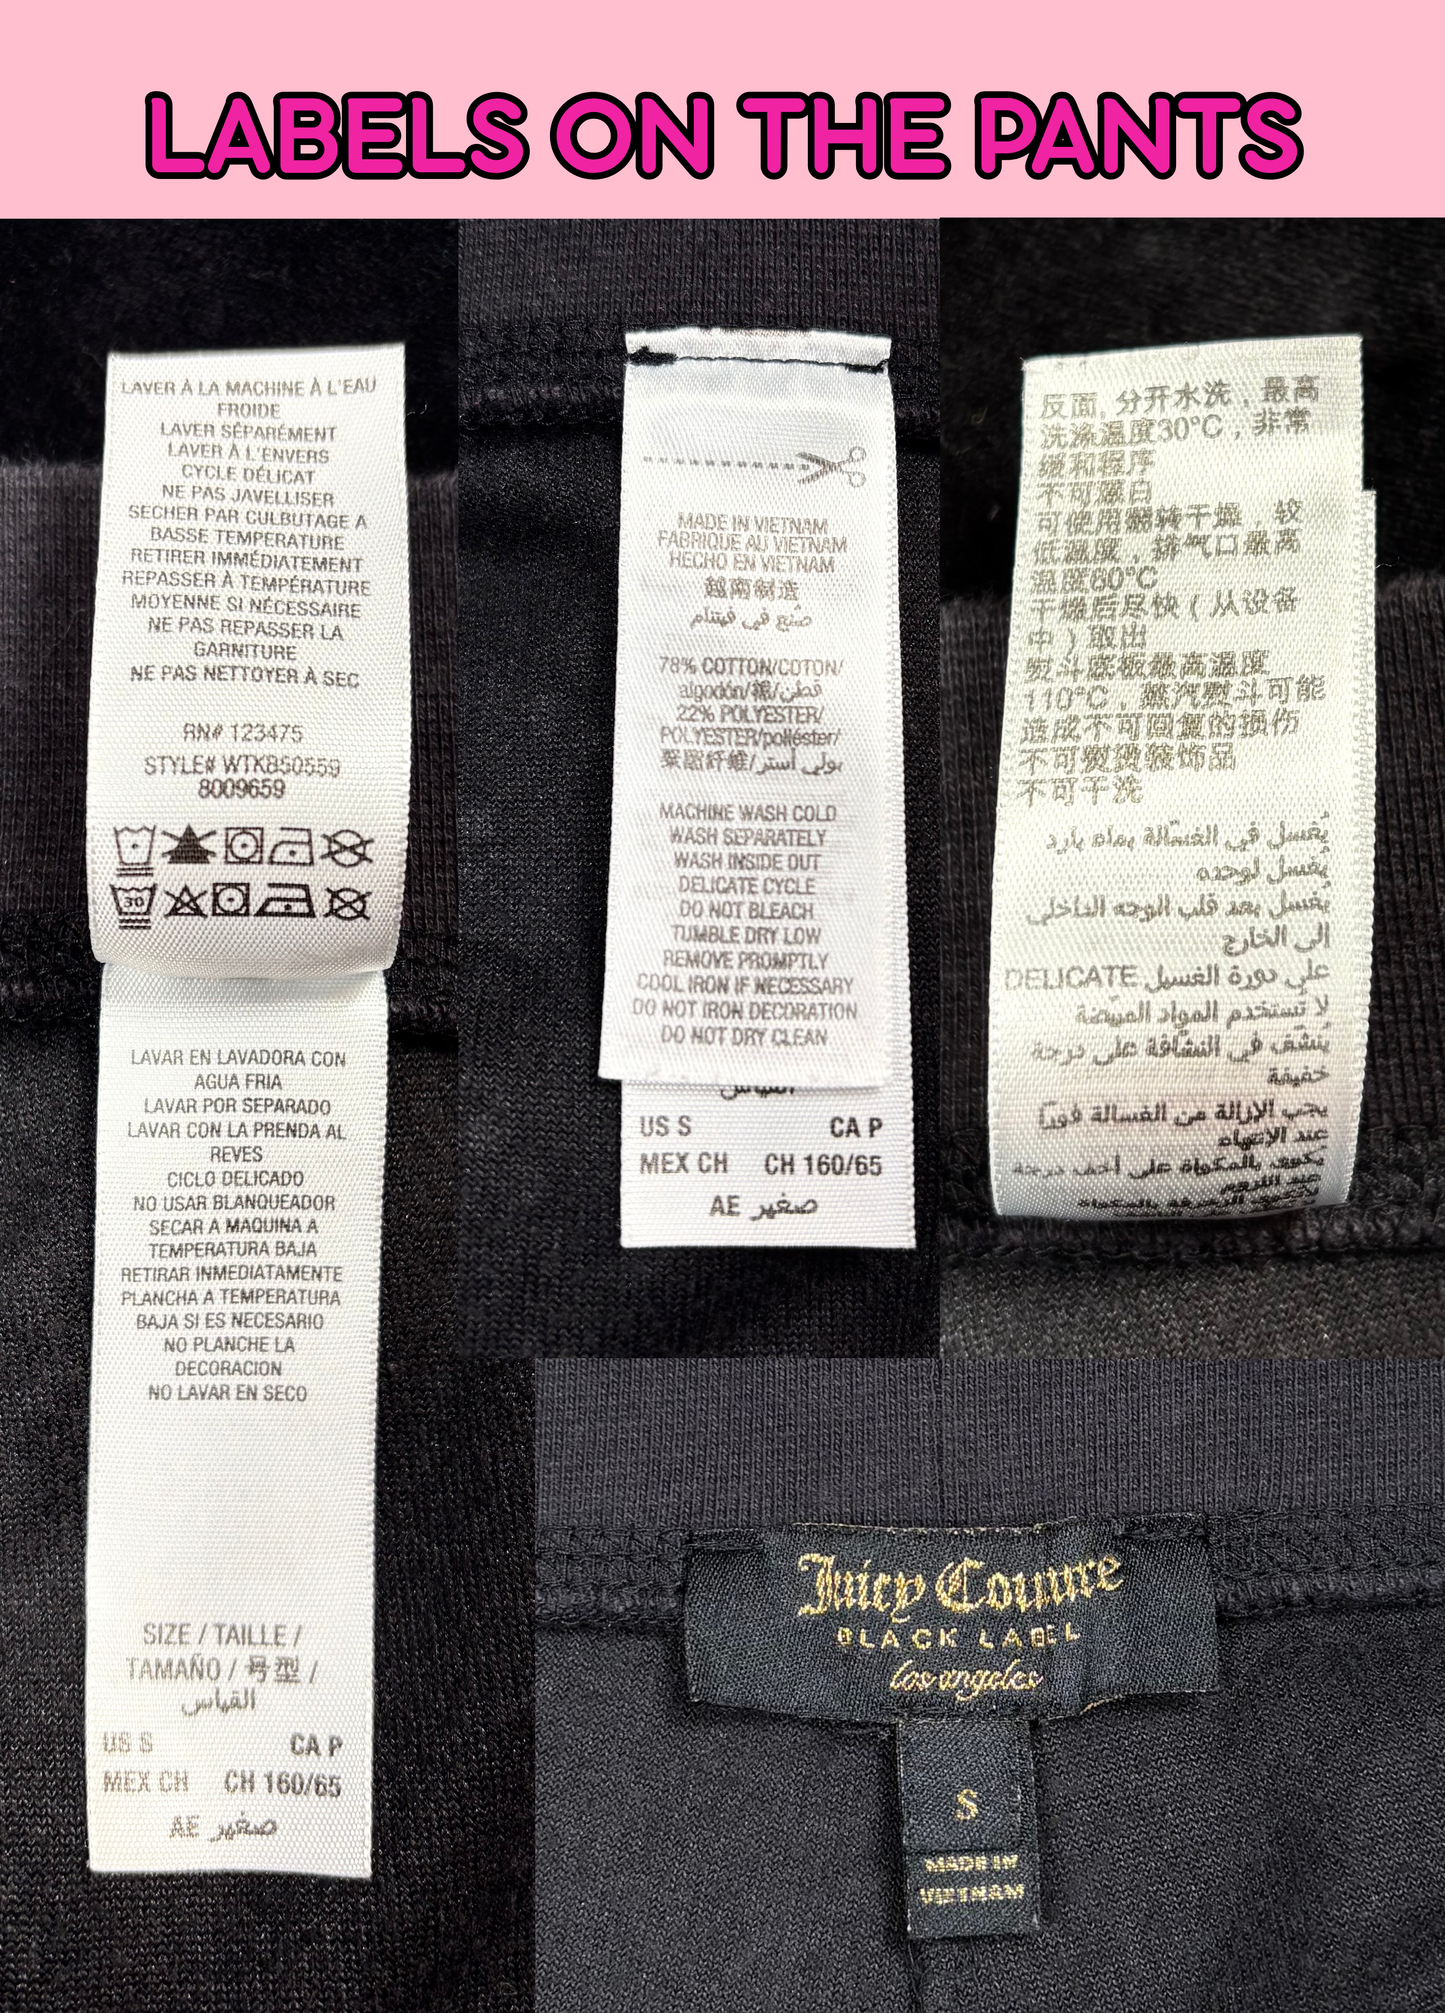 LABELS ON THE PANTS
LAVER À LA MACHINE À L'EAU
FROIDE
LAVER SÉPARÉMENT
LAVER À L'ENVERS
CYCLE DÉLICAT
NE PAS JAVELLISER
SECHER PAR CULBUTAGE A
BASSE TEMPERATURE
RETIRER IMMÉDIATEMENT
REPASSER À TEMPÉRATURE
MOYENNE SI NÉCESSAIRE
NE PAS REPASSER LA
GARNITURE
NE PAS NETTOYER À SEC
RN# 123475
STYLE# WTKB50559
8009659
30
LAVAR EN LAVADORA CON
AGUA FRIA
LAVAR POR SEPARADO
LAVAR CON LA PRENDA AL
REVES
CICLO DELICADO
NO USAR BLANQUEADOR
SECAR A MAQUINA A
TEMPERATURA BAJA
RETIRAR INMEDIATAMENTE
PLANCHA A TEMPERATURA
BAJA SI ES NECESARIO
NO PLANCHE LA
DECORACION
NO LAVAR EN SECO
SIZE / TAILLE /
TAMAÑO / 号型 /
القياس
US S CA P
MEX CH CH 160/65
AE صغير
MADE IN VIETNAM
FABRIQUE AU VIETNAM
HECHO EN VIETNAM
越南制造
صنع في فيتنام
78% COTTON/COTON/
algodón/棉/قطن
22% POLYESTER/
POLYESTER/poliéster/
聚酯纤维/بولي أستر
MACHINE WASH COLD
WASH SEPARATELY
WASH INSIDE OUT
DELICATE CYCLE
DO NOT BLEACH
TUMBLE DRY LOW
REMOVE PROMPTLY
COOL IRON IF NECESSARY
DO NOT IRON DECORATION
DO NOT DRY CLEAN
القياس
US S CA P
MEX CH CH 160/65
AE صغير
反面, 分开水洗，最高
洗涤温度30°C，非常
缓和程序
不可漂白
可使用翻转干燥，较
低温度，排气口最高
温度60°C
干燥后尽快 ( 从设备
中 ) 取出
熨斗底板最高温度
110°C，蒸汽熨斗可能
造成不可回复的损伤
不可熨烫装饰品
不可干洗
يُغسل في الغسّالة بماء بارد
يُغسل لوحده
يُغسل بعد قلب الوجه الداخلي
إلى الخارج
على دورة الغسيل DELICATE
لا تستخدم المواد المبيّضة
يُنشّف في النشّافة على درجة
خفيفة
يجب الإزالة من الغسالة فورًا
عند الانتهاء
يُكوى بالمكواة على أخف درجة
عند اللزوم
Juicy Couture
BLACK LABEL
los angeles
S
MADE IN
VIETNAM